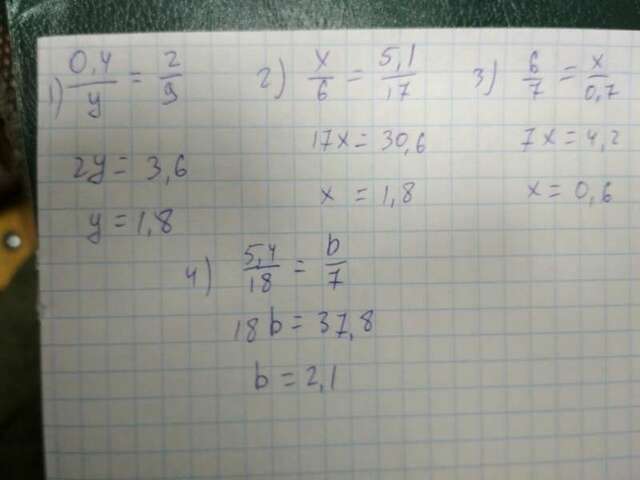 1) 0,4/y = 2/9
2y = 3,6
y = 1,8
2) x/6 = 5,1/17
17x = 30,6
x = 1,8
3) 6/7 = x/0,7
7x = 4,2
x = 0,6
4) 5,4/18 = b/7
18b = 37,8
b = 2,1